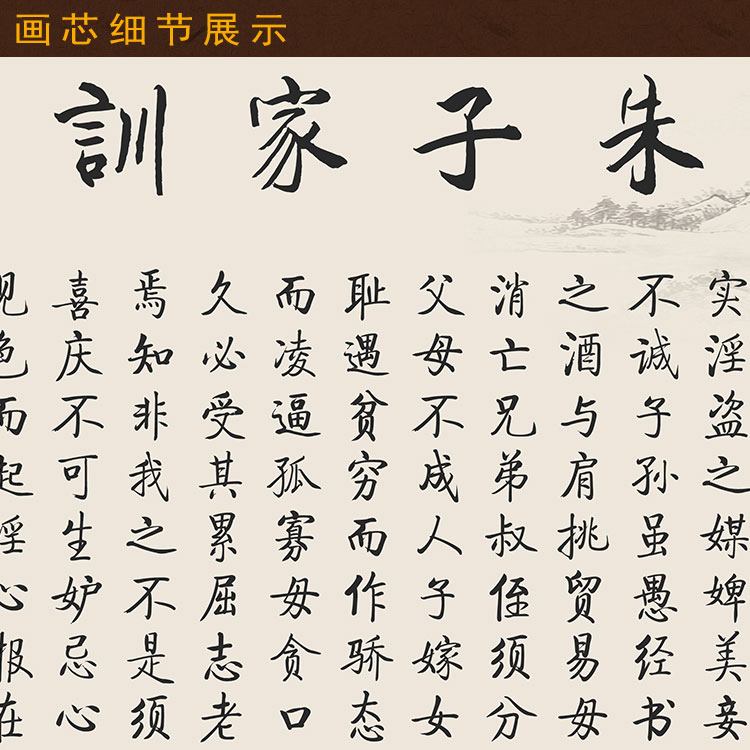 画芯细节展示
朱子家訓
实淫盗之媒婢美妾
不诚子孙虽愚经书
之酒与肩挑贸易毋
消亡兄弟叔侄须分
父母不成人子嫁女
耻遇贫穷而作骄态
而凌逼孤寡毋贪口
久必受其累屈志老
焉知非我之不是须
喜庆不可生妒忌心
见色而起淫心报在